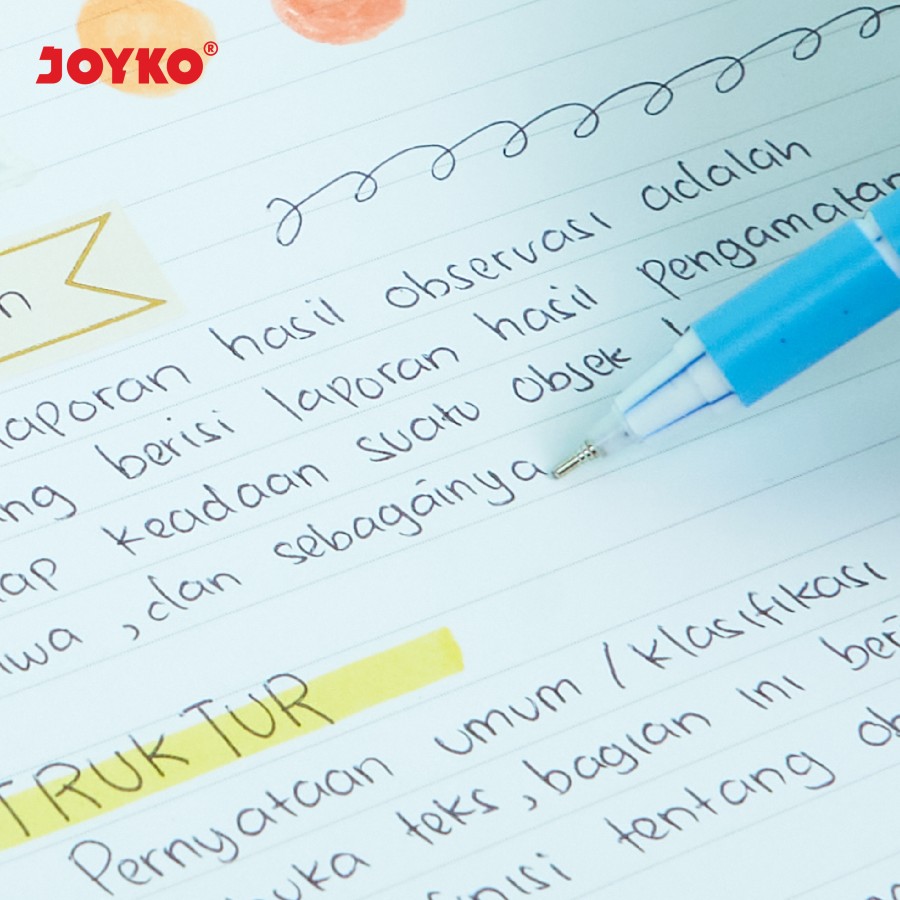 JOYKO®
n
laporan hasil observasi adalah
ng berisi laporan hasil pengamatan
ap keadaan suatu objek
iwa , dan sebagainya
TRUKTUR
Pernyataan umum / klasifikasi
buka teks, bagian ini beri
finisi tentang ob